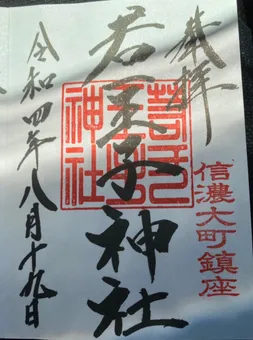 奉拝
信濃大町鎮座
若一王子神社
若一王子神社
令和四年八月十九日